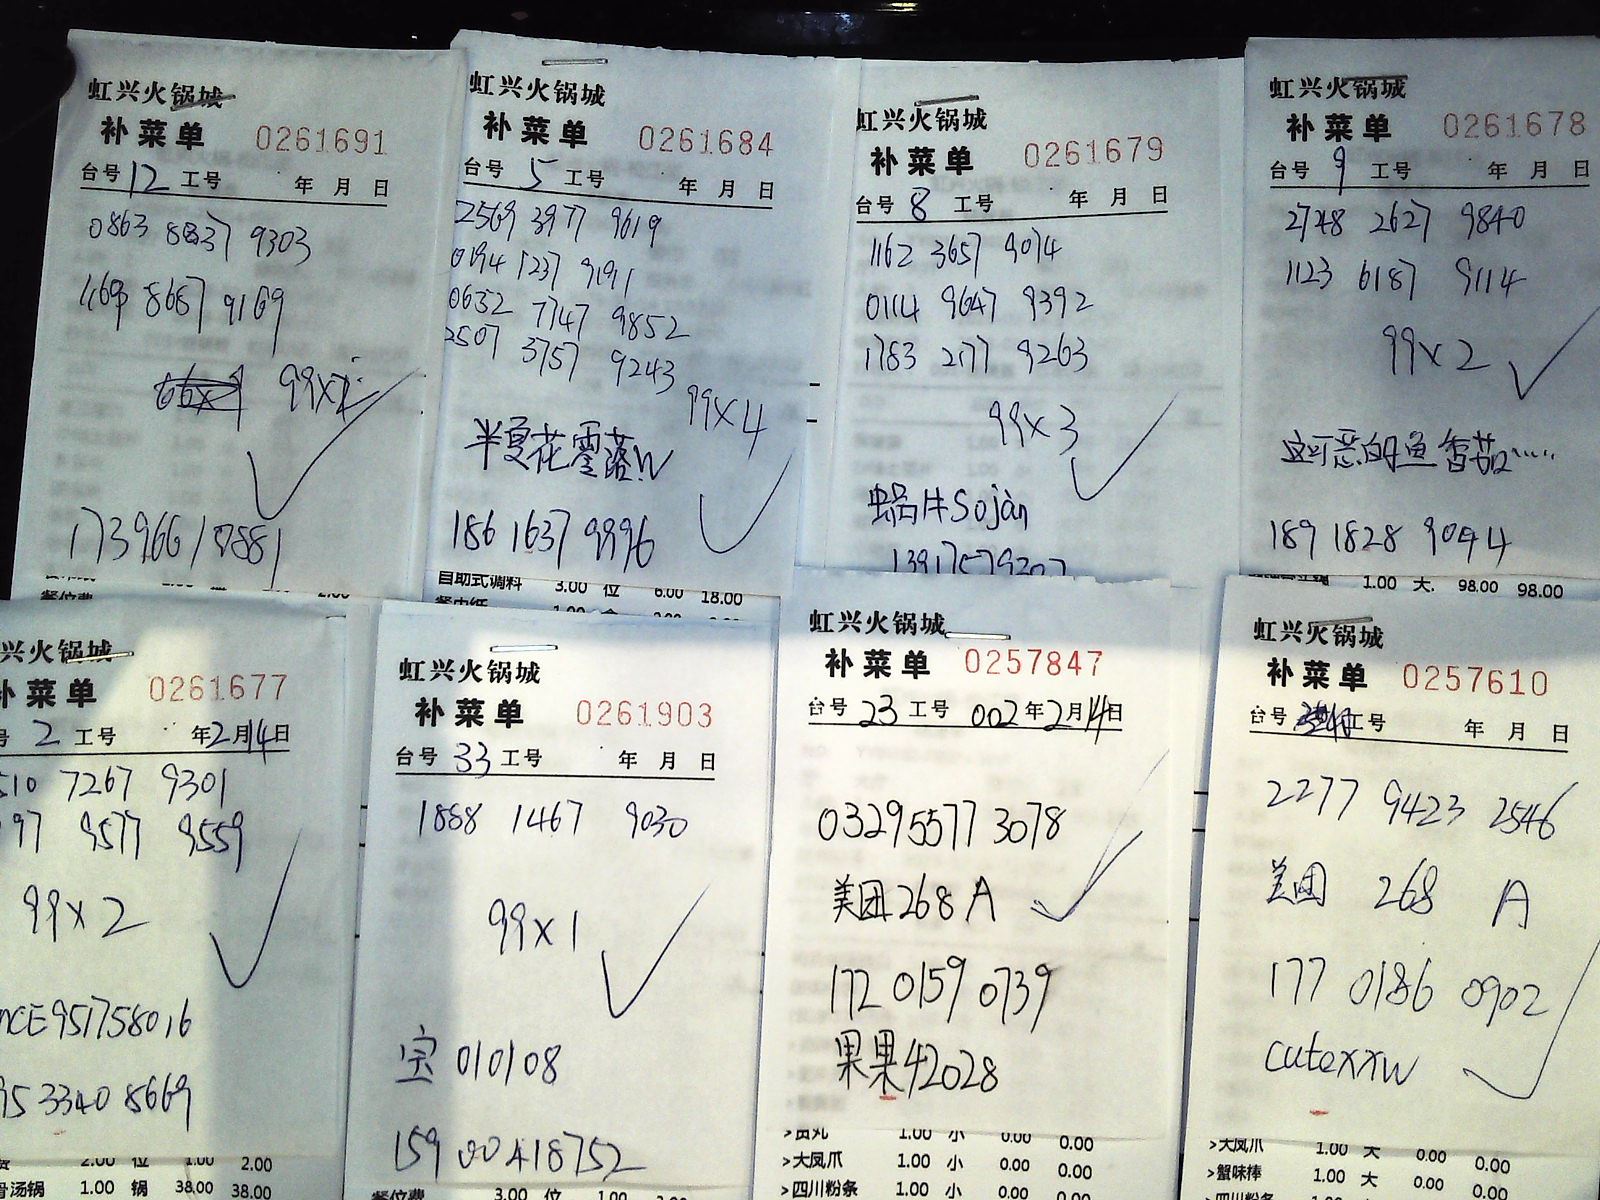 虹兴火锅城
补菜单 0261691
台号 12 工号 年 月 日
0863 8837 9303
1169 8687 9169
99x2
虹兴火锅城
补菜单 0261684
台号 5 工号 年 月 日
2569 3977 9619
0194 1237 9191
0652 7747 9852
2507 3757 9243
99x4
半夏花零落W
186 1637 9996
自助式调料 3.00 位 6.00 18.00
虹兴火锅城
补菜单 0261679
台号 8 工号 年 月 日
1162 3657 9074
0114 9647 9392
1783 2177 9263
99x3
蜗牛Sojàn
虹兴火锅城
补菜单 0261678
台号 9 工号 年 月 日
2748 2627 9840
1123 6187 9114
99x2
这可恶的鱼香茄……
189 1828 9094
1.00 大. 98.00 98.00
兴火锅城
补菜单 0261677
号 2 工号 年2月14日
510 7267 9301
197 9577 9559
99x2
nCE951758016
95 3340 8669
2.00 位 1.00 2.00
骨汤锅 1.00 锅 38.00 38.00
虹兴火锅城
补菜单 0261903
台号 33 工号 年 月 日
1888 1467 9030
99x1
宝010108
159 00418752
餐位费 3.00 位 1.00
虹兴火锅城
补菜单 0257847
台号 23 工号 002年2月14日
03295577 3078
美团268A
172 0159 0739
果果42028
>贡丸 1.00 小 0.00 0.00
>大凤爪 1.00 小 0.00 0.00
>四川粉条 1.00 小 0.00 0.00
虹兴火锅城
补菜单 0257610
台号 工号 年 月 日
2277 9423 2546
美团 268 A
177 0186 0902
cutexxw
>大凤爪 1.00 大 0.00 0.00
>蟹味棒 1.00 大 0.00 0.00